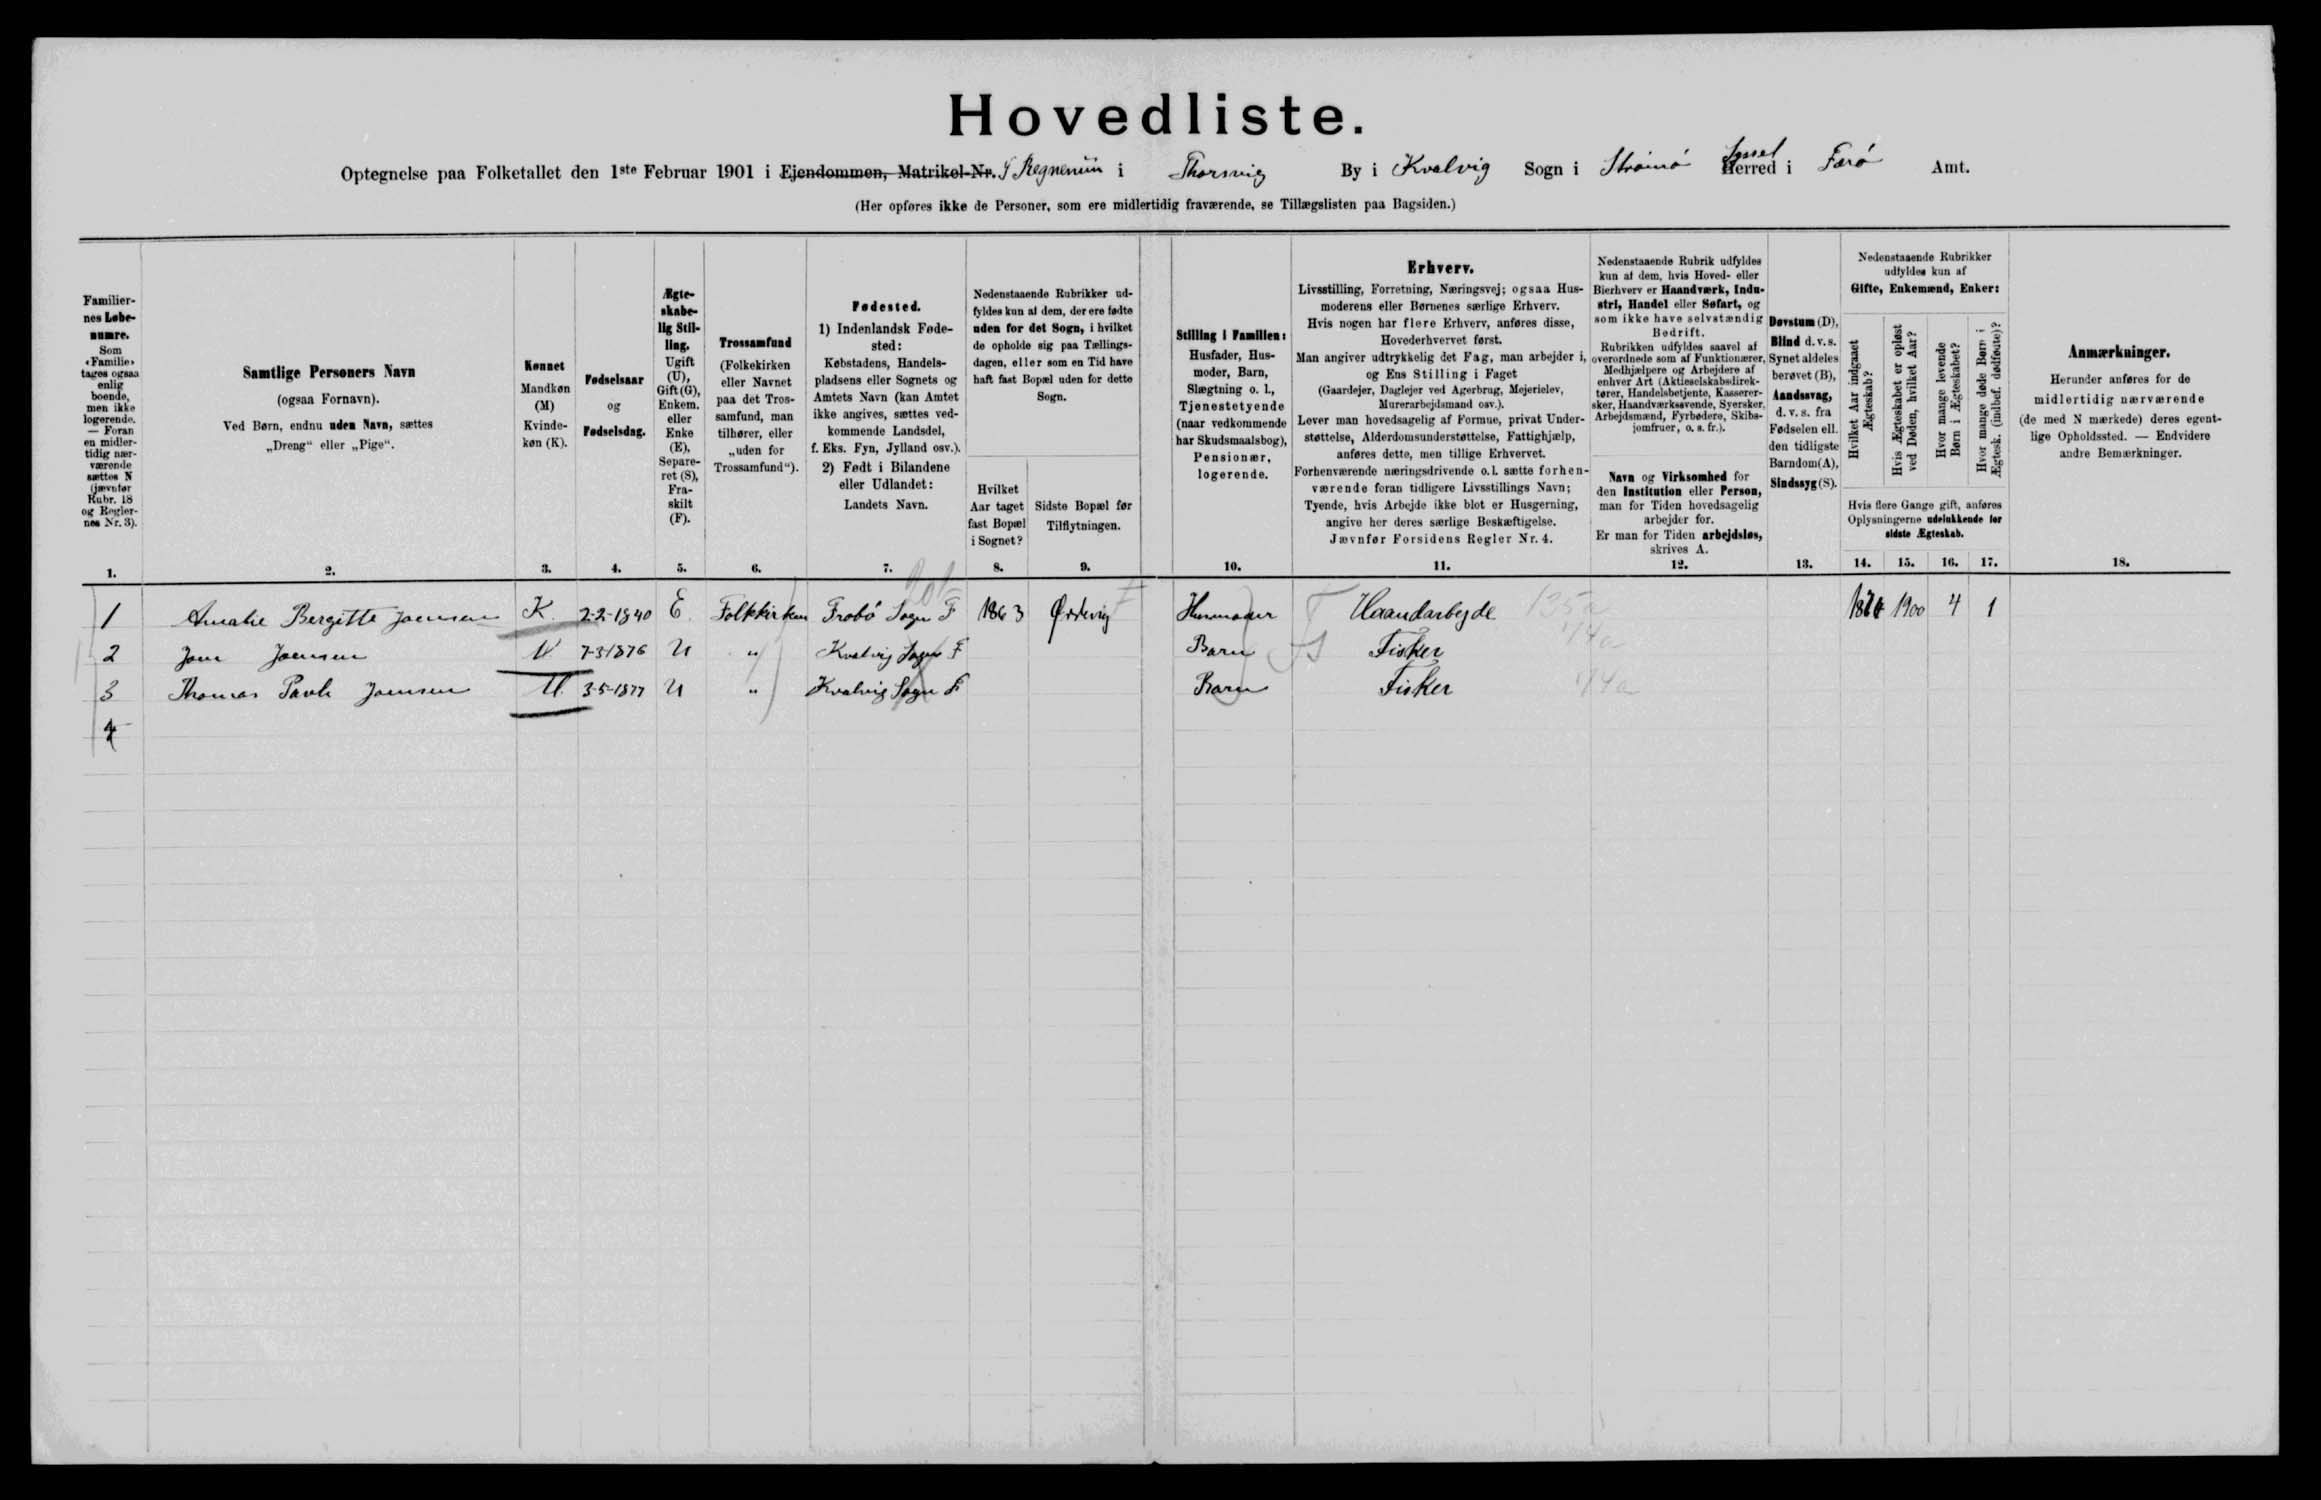 Hovedliste.
Optegnelse paa Folketallet den 1ste Februar 1901 i Ejendommen, Matrikel-Nr. i Thorsvig By i Kvalvig Sogn i Strømø Syssel Herred i Færø Amt.
(Her opføres ikke de Personer, som ere midlertidig fraværende, se Tillægslisten paa Bagsiden.)
Familiernes Løbenumre.
Som «Familie» tages ogsaa enlig boende, men ikke logerende. — Foran en midlertidig nærværende sættes N (jævnfør Rubr. 18 og Reglernes Nr. 3).
Samtlige Personers Navn
(ogsaa Fornavn).
Ved Børn, endnu uden Navn, sættes
„Dreng“ eller „Pige“.
Kønnet
Mandkøn
(M)
Kvindekøn (K).
Fødselsaar
og
Fødselsdag.
Ægteskabelig Stilling.
Ugift (U), Gift (G), Enkem. eller Enke (E), Separeret (S), Fraskilt (F).
Trossamfund
(Folkekirken eller Navnet paa det Trossamfund, man tilhører, eller „uden for Trossamfund“).
Fødested.
1) Indenlandsk Fødested:
Købstadens, Handelspladsens eller Sognets og Amtets Navn (kan Amtet ikke angives, sættes vedkommende Landsdel, f. Eks. Fyn, Jylland osv.).
2) Født i Bilandene eller Udlandet:
Landets Navn.
Nedenstaaende Rubrikker udfyldes kun af dem, der ere fødte uden for det Sogn, i hvilket de opholde sig paa Tællingsdagen, eller som en Tid have haft fast Bopæl uden for dette Sogn.
Hvilket Aar taget fast Bopæl i Sognet?
Sidste Bopæl før Tilflytningen.
Stilling i Familien:
Husfader, Husmoder, Barn, Slægtning o. l., Tjenestetyende (naar vedkommende har Skudsmaalsbog), Pensionær, logerende.
Erhverv.
Livsstilling, Forretning, Næringsvej; ogsaa Husmoderens eller Børnenes særlige Erhverv.
Hvis nogen har flere Erhverv, anføres disse, Hovederhvervet først.
Man angiver udtrykkelig det Fag, man arbejder i, og Ens Stilling i Faget
(Gaardejer, Daglejer ved Agerbrug, Mejerielev, Murerarbejdsmand osv.).
Lever man hovedsagelig af Formue, privat Understøttelse, Alderdomsunderstøttelse, Fattighjælp, anføres dette, men tillige Erhvervet.
Forhenværende næringsdrivende o. l. sætte forhenværende foran tidligere Livsstillings Navn;
Tyende, hvis Arbejde ikke blot er Husgerning, angive her deres særlige Beskæftigelse.
Jævnfør Forsidens Regler Nr. 4.
Nedenstaaende Rubrik udfyldes kun af dem, hvis Hoved- eller Bierhverv er Haandværk, Industri, Handel eller Søfart, og som ikke have selvstændig Bedrift.
Rubrikken udfyldes saavel af overordnede som af Funktionærer, Medhjælpere og Arbejdere af enhver Art (Aktieselskabsdirektører, Handelsbetjente, Kasserersker, Haandværkssvende, Syersker, Arbejdsmænd, Fyrbødere, Skibsjomfruer, o. s. fr.).
Navn og Virksomhed for den Institution eller Person, man for Tiden hovedsagelig arbejder for.
Er man for Tiden arbejdsløs, skrives A.
Døvstum (D), Blind d. v. s. Synet aldeles berøvet (B), Aandssvag, d. v. s. fra Fødselen ell. den tidligste Barndom (A), Sindssyg (S).
Nedenstaaende Rubrikker udfyldes kun af
Gifte, Enkemænd, Enker:
Hvilket Aar indgaaet Ægteskab?
Hvis Ægteskabet er opløst ved Døden, hvilket Aar?
Hvor mange levende Børn i Ægteskabet?
Hvor mange døde Børn i Ægtesk. (indbef. dødfødte)?
Hvis flere Gange gift, anføres Oplysningerne udelukkende for sidste Ægteskab.
Anmærkninger.
Herunder anføres for de midlertidig nærværende (de med N mærkede) deres egentlige Opholdssted. — Endvidere andre Bemærkninger.
1. 2. 3. 4. 5. 6. 7. 8. 9. 10. 11. 12. 13. 14. 15. 16. 17. 18.
1 Amalie Bergitte Joensen K. 2-2-1840 E. Folkkirken Frobø Sogn F 1863 Husmoder Haandarbejde 135a 1900 4 1
2 Joen Joensen M 7-3-1876 U „ Kvalvig Sogn F Barn Fisker 14a
3 Thomas Pavli Joensen M. 3-5-1877 U „ Kvalvig Sogn F Barn Fisker 14a
4